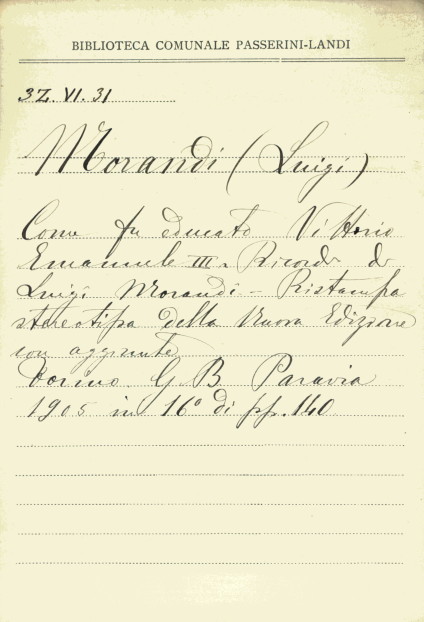 BIBLIOTECA COMUNALE PASSERINI-LANDI
3Z. VI. 31
Morandi (Luigi)
Come fu educato Vittorio
Emanuele III - Ricordi di
Luigi Morandi - Ristampa
stereotipa della Nuova Edizione
con aggiunte
Torino G B Paravia
1905 in 16° di pp. 140